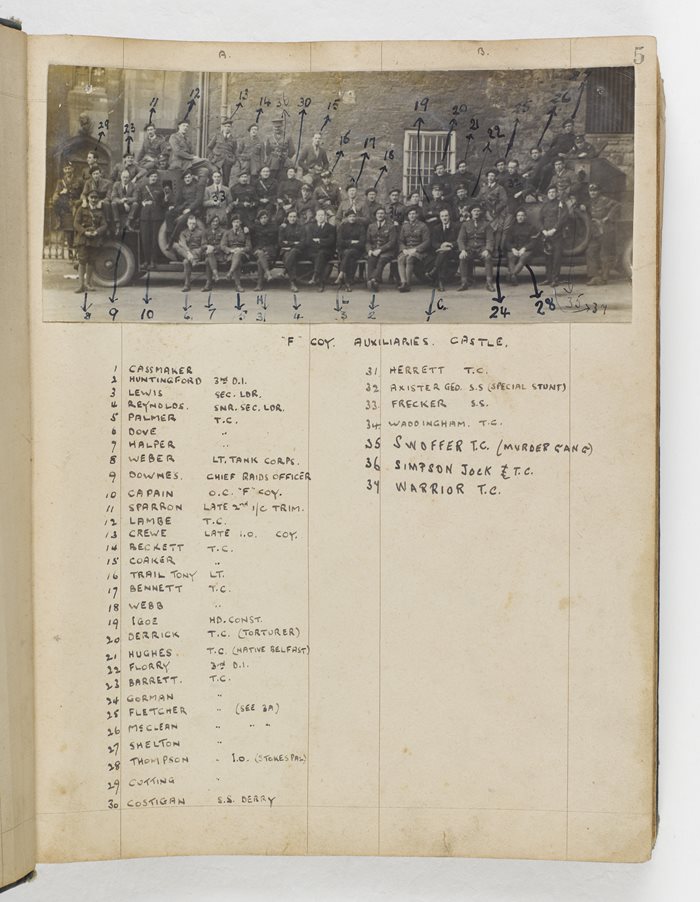 A. B. 5
29 23 11 12 13 14 30 15 16 17 18 19 20 21 22 25 26 27
33
8 9 10 6 7 5 3 4 3 2 1 C. 24 28 35 34
"F" COY. AUXILIARIES. CASTLE.
1 CASSMAKER
2 HUNTINGFORD 3rd D.I.
3 LEWIS SEC. LDR.
4 REYNOLDS. SNR. SEC. LDR.
5 PALMER T.C.
6 DOVE "
7 HALPER "
8 WEBER LT. TANK CORPS.
9 DOWNES. CHIEF RAIDS OFFICER
10 CAPAIN O.C. "F" COY.
11 SPARRON LATE 2nd I/C TRIM.
12 LAMBE T.C.
13 CREWE LATE I.O. COY.
14 BECKETT T.C.
15 COAKER "
16 TRAIL TONY LT.
17 BENNETT T.C.
18 WEBB "
19 IGOE HD. CONST.
20 DERRICK T.C. (TORTURER)
21 HUGHES T.C. (NATIVE BELFAST)
22 FLORRY 3rd D.I.
23 BARRETT. T.C.
24 GORMAN "
25 FLETCHER " (SEE 3A)
26 McCLEAN " " "
27 SHELTON "
28 THOMPSON " I.O. (STOKES PAL)
29 CUTTING "
30 COSTIGAN S.S. DERRY
31. HERRETT T.C.
32 AXISTER GEO. S.S (SPECIAL STUNT)
33. FRECKER S.S.
34. WADDINGHAM. T.C.
35 SWOFFER T.C. (MURDER GANG)
36 SIMPSON JOCK T.C.
37 WARRIOR T.C.